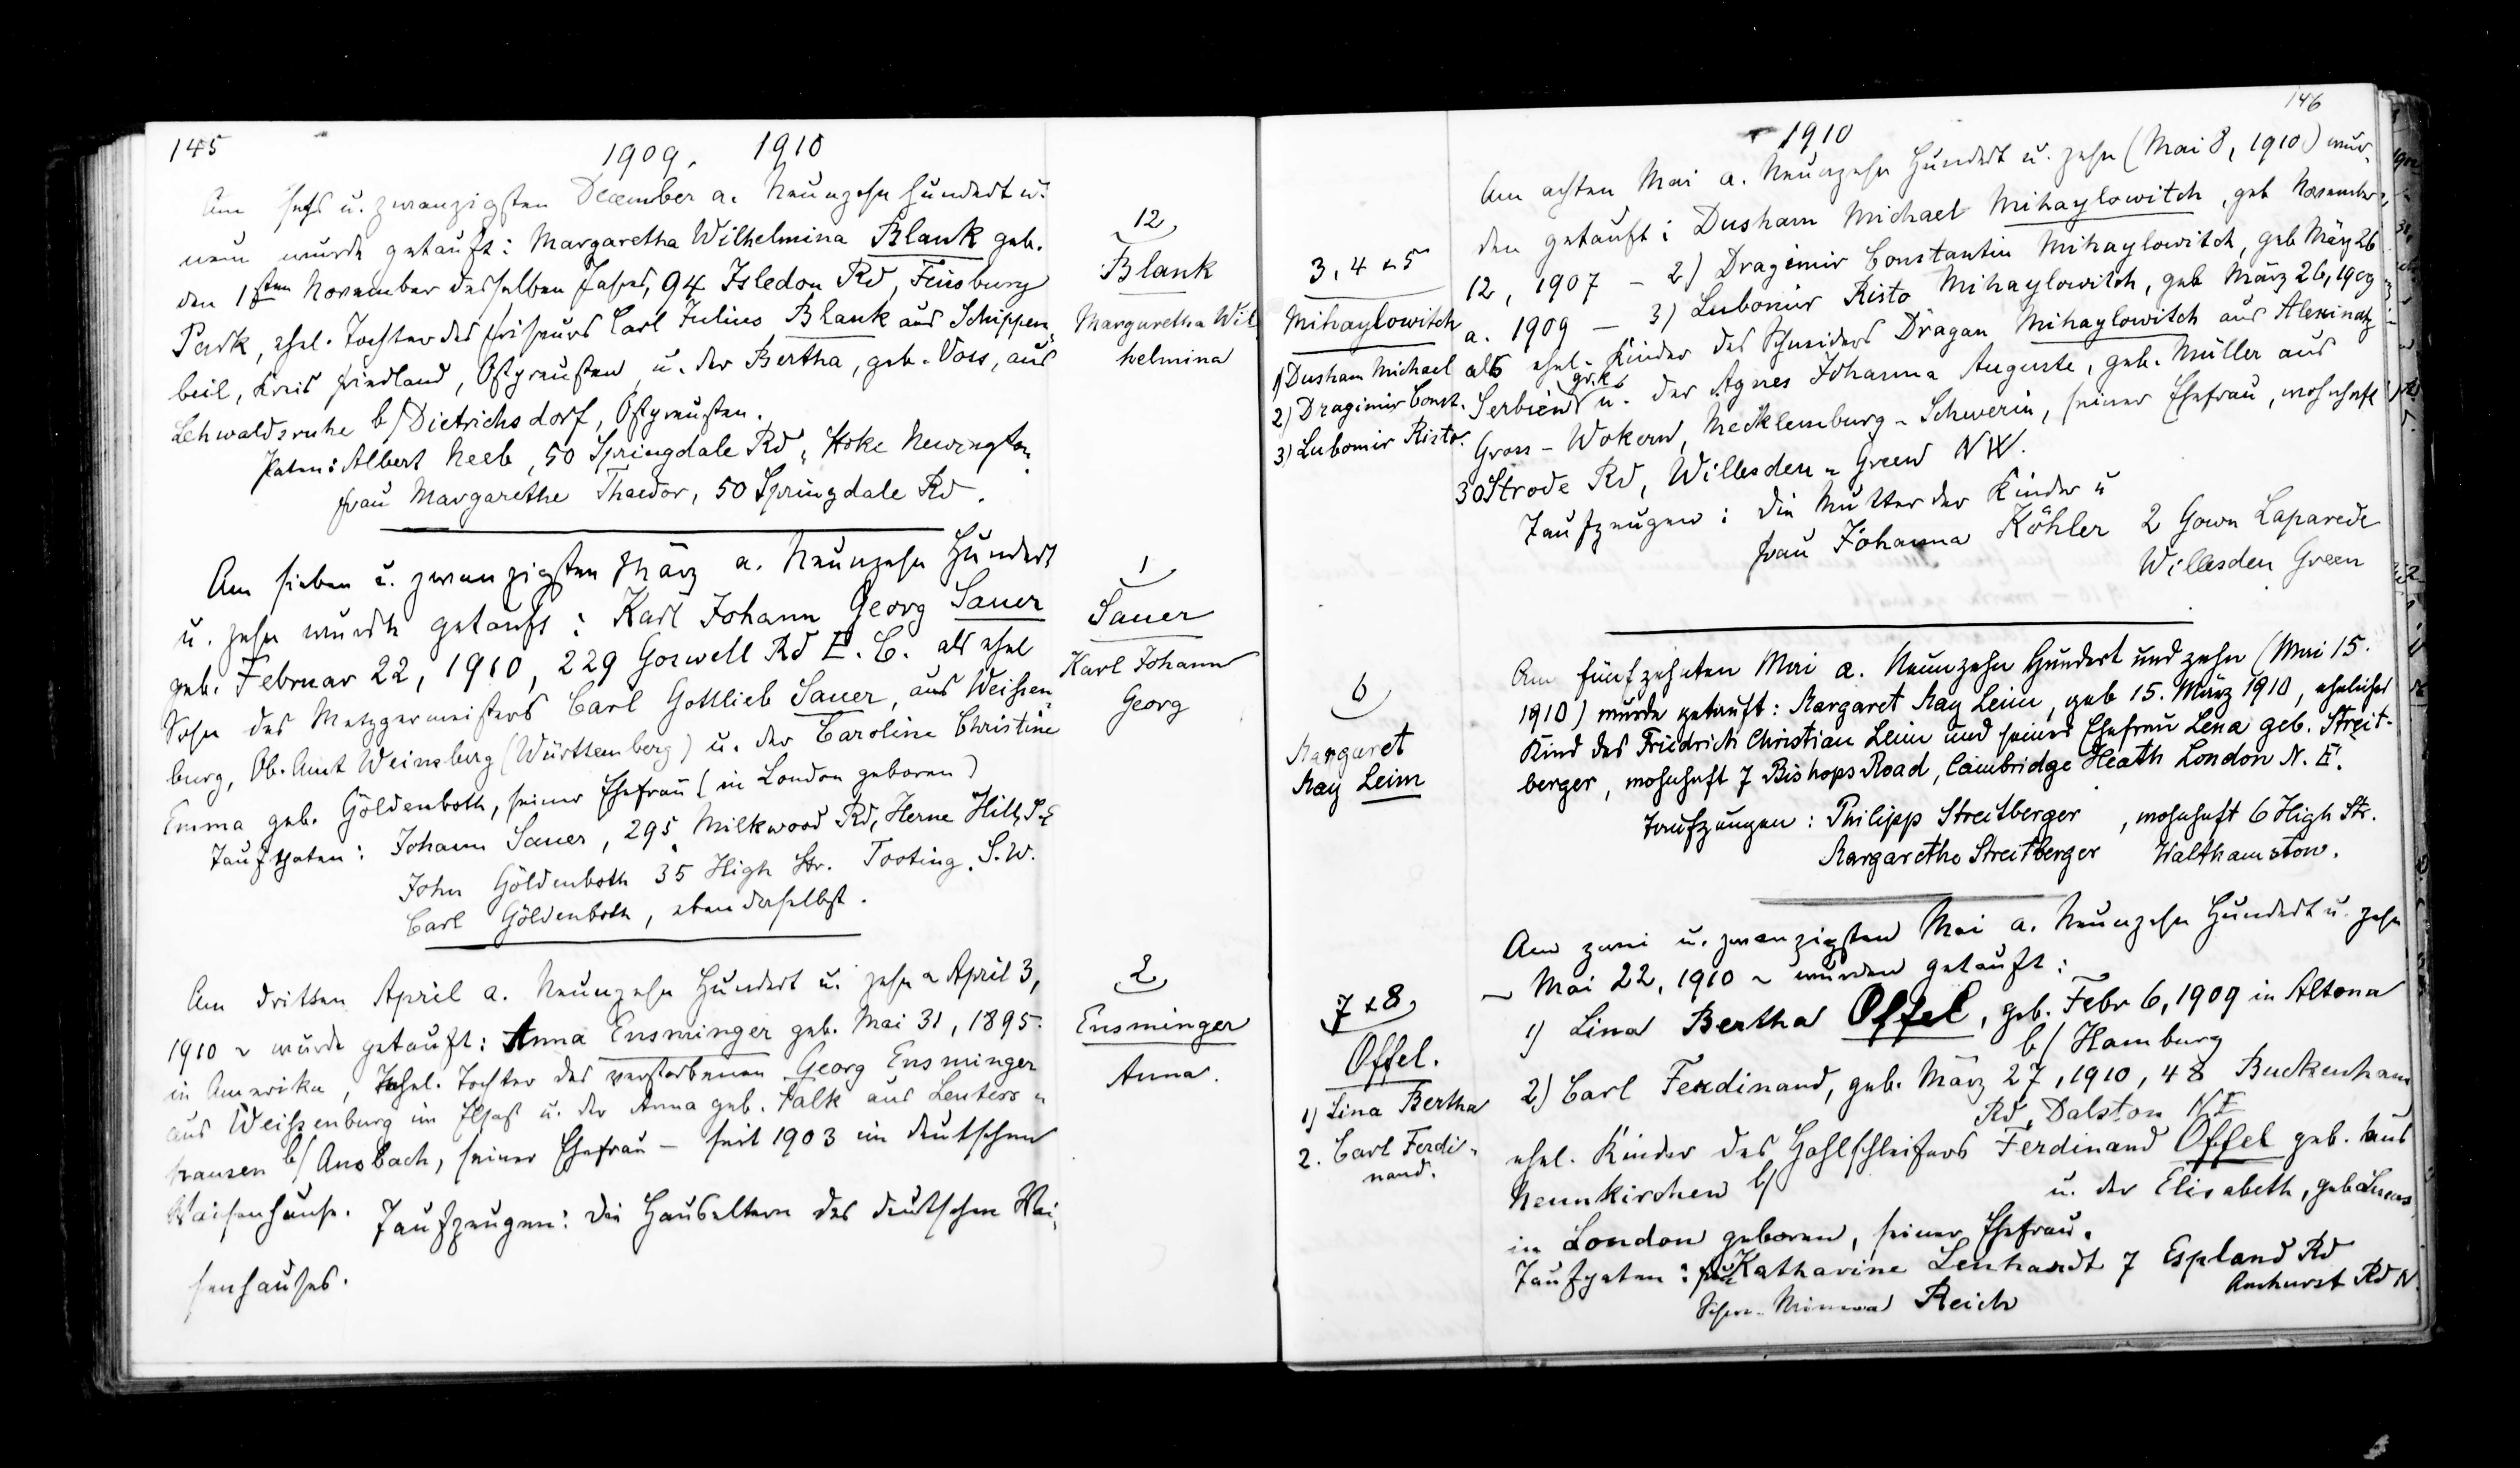 145
1909. 1910
Am sechs u. zwanzigsten December a. Neunzehn hundert u.
neun wurde getauft: Margaretha Wilhelmina Blank geb.
den 1sten November desselben Jahres, 94 Isledon Rd, Finsbury
Park, ehel. Tochter des Friseurs Carl Julius Blank aus Schippen-
beil, Kreis Friedland, Ostpreußen u. der Bertha, geb. Voss, aus
Lehwaldsruhe b/Dietrichsdorf, Ostpreußen.
Paten: Albert Neeb, 50 Springdale Rd, Stoke Newington
Frau Margarethe Thaedor, 50 Springdale Rd.
12
Blank
Margaretha Wil
helmina
Am sieben u. zwanzigsten März a. Neunzehn Hundert
u. zehn wurde getauft: Karl Johann Georg Sauer
geb. Februar 22, 1910, 229 Goswell Rd E. C. als ehel
Sohn des Metzgermeisters Carl Gottlieb Sauer, aus Weissen-
burg, Ob. Amt Weinsberg (Württemberg) u. der Caroline Christine
Emma geb. Göldenboth, seiner Ehefrau (in London geboren)
Taufpaten: Johann Sauer, 295 Milkwood Rd, Herne Hill, S.E
John Göldenboth 35 High Str. Tooting. S.W.
Carl Göldenboth, ebenderselbst.
1
Sauer
Karl Johann
Georg
Am dritten April a. Neunzehn Hundert u. zehn ~ April 3,
1910 ~ wurde getauft: Anna Ensminger geb. Mai 31, 1895.
in Amerika, ehel. Tochter des verstorbenen Georg Ensminger
aus Weißenburg im Elsaß u. der Anna geb. Falk aus Leuters-
hausen b/ Ansbach, seiner Ehefrau — seit 1903 im deutschen
Waisenhause. Taufzeugen: Die Hauseltern des deutschen Wai-
senhauses.
2
Ensminger
Anna.
146
1910
Am achten Mai a. Neunzehn Hundert u. zehn (Mai 8, 1910) wur-
den getauft: Dusham Michael Mihaylowitch, geb November
12, 1907 – 2) Dragimir Constantin Mihaylowitch, geb März 26
a. 1909 — 3) Lubomir Risto Mihaylowitch, geb März 26, 1909
als ehel. Kinder des Schneiders Dragan Mihaylowitch aus Alexinatz
Serbien gr.k. u. der Agnes Johanna Auguste, geb. Müller aus
Gross-Wokern, Mecklemburg-Schwerin, seiner Ehefrau, wohnhaft
30 Strode Rd, Willesden-Green NW.
Taufzeugen: Die Mutter der Kinder u
Frau Johanna Köhler 2 Gown Laparede
Willesden Green
3, 4 & 5
Mihaylowitch
1) Dusham Michael
2) Dragimir Const.
3) Lubomir Risto.
Am fünfzehnten Mai a. Neunzehn Hundert und zehn (Mai 15.
1910) wurde getauft: Margaret May Leim, geb 15. März 1910, eheliches
Kind des Friedrich Christian Leim und seiner Ehefrau Lena geb. Streit-
berger, wohnhaft 7 Bishops Road, Cambridge Heath London N. E.
Taufzeugen: Philipp Streitberger, wohnhaft 6 High Str.
Margarethe Streitberger Walthamstow.
6
Margaret
May Leim
Am zwei u. zwanzigsten Mai a. Neunzehn Hundert u. zehn
~ Mai 22, 1910 ~ wurden getauft:
1) Lina Bertha Offel, geb. Febr 6, 1909 in Altona
b/ Hamburg
2) Carl Ferdinand, geb. März 27, 1910, 48 Buckenham
Rd, Dalston N.E
ehel. Kinder des Hohlschleifers Ferdinand Offel geb. aus
Neunkirchen b/ u. der Elisabeth, geb Lucas
in London geboren, seiner Ehefrau.
Taufpaten: Frau Katharine Lenhardt 7 Espland Rd
Amhurst Rd N.
Reich
7 & 8
Offel.
1) Lina Bertha
2. Carl Ferdi-
nand.